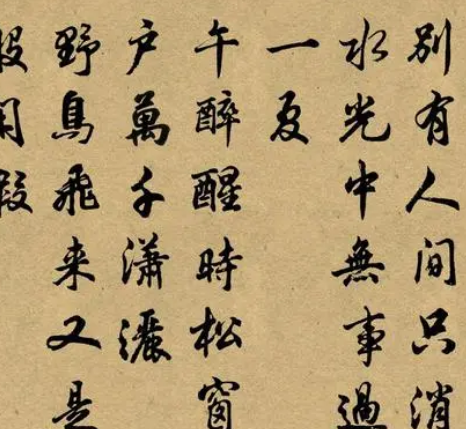 別有人間只消
水光中無事過
一夏
午醉醒時松窗
户萬千瀟灑
野鳥飛来又是